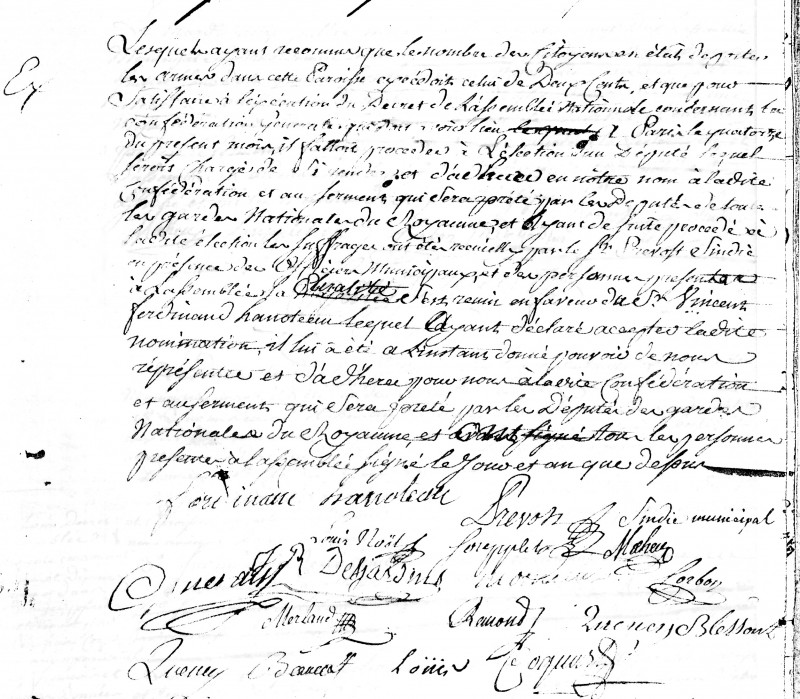 Lesquels ayant reconnu que le nombre des Citoyens en état de porter
les armes dans cette Paroisse excedoit celui de Deux Cents, et que pour
Satisfaire à l'éxécution du Decret de l'Assemblée Nationale concernant la
confédération générale qui doit avoir lieu à Paris le quatorze
du présent mois, il falloit proceder à l'élection d'un Député lequel
seroit chargés de s'i rendre et d'adherer en nôtre nom à ladite
Confédération et au serment qui sera prêté par les députés de tous
les gardes Nationales du Royaume et ayant de suite procedé à
ladite élection les suffrages ont été recueilly par le Sr. Prevost Sindic
en présence des Officiers Municipaux et des personnes presentes
à L'assemblée la Pluralité s'est remis en faveur du Sr. Vincent
ferdinand hanoteau lequel ayant déclaré accepter ladite
nomination, il lui à été a L'instant donné pouvoir de nous
représenter et d'adherer pour nous à ladite Confédération
et au serment qui sera prêté par les Députés des gardes
Nationales du Royaume et ont signé tous les personnes
presente a l'assemblée signé le Jour et an que dessus
Ferdinand hanoteau
Prevost Sindic municipal
Louis Noël Maheu
Desjardins Corbon
Merland Remond Queney Blessont
Queney Louis Coquus